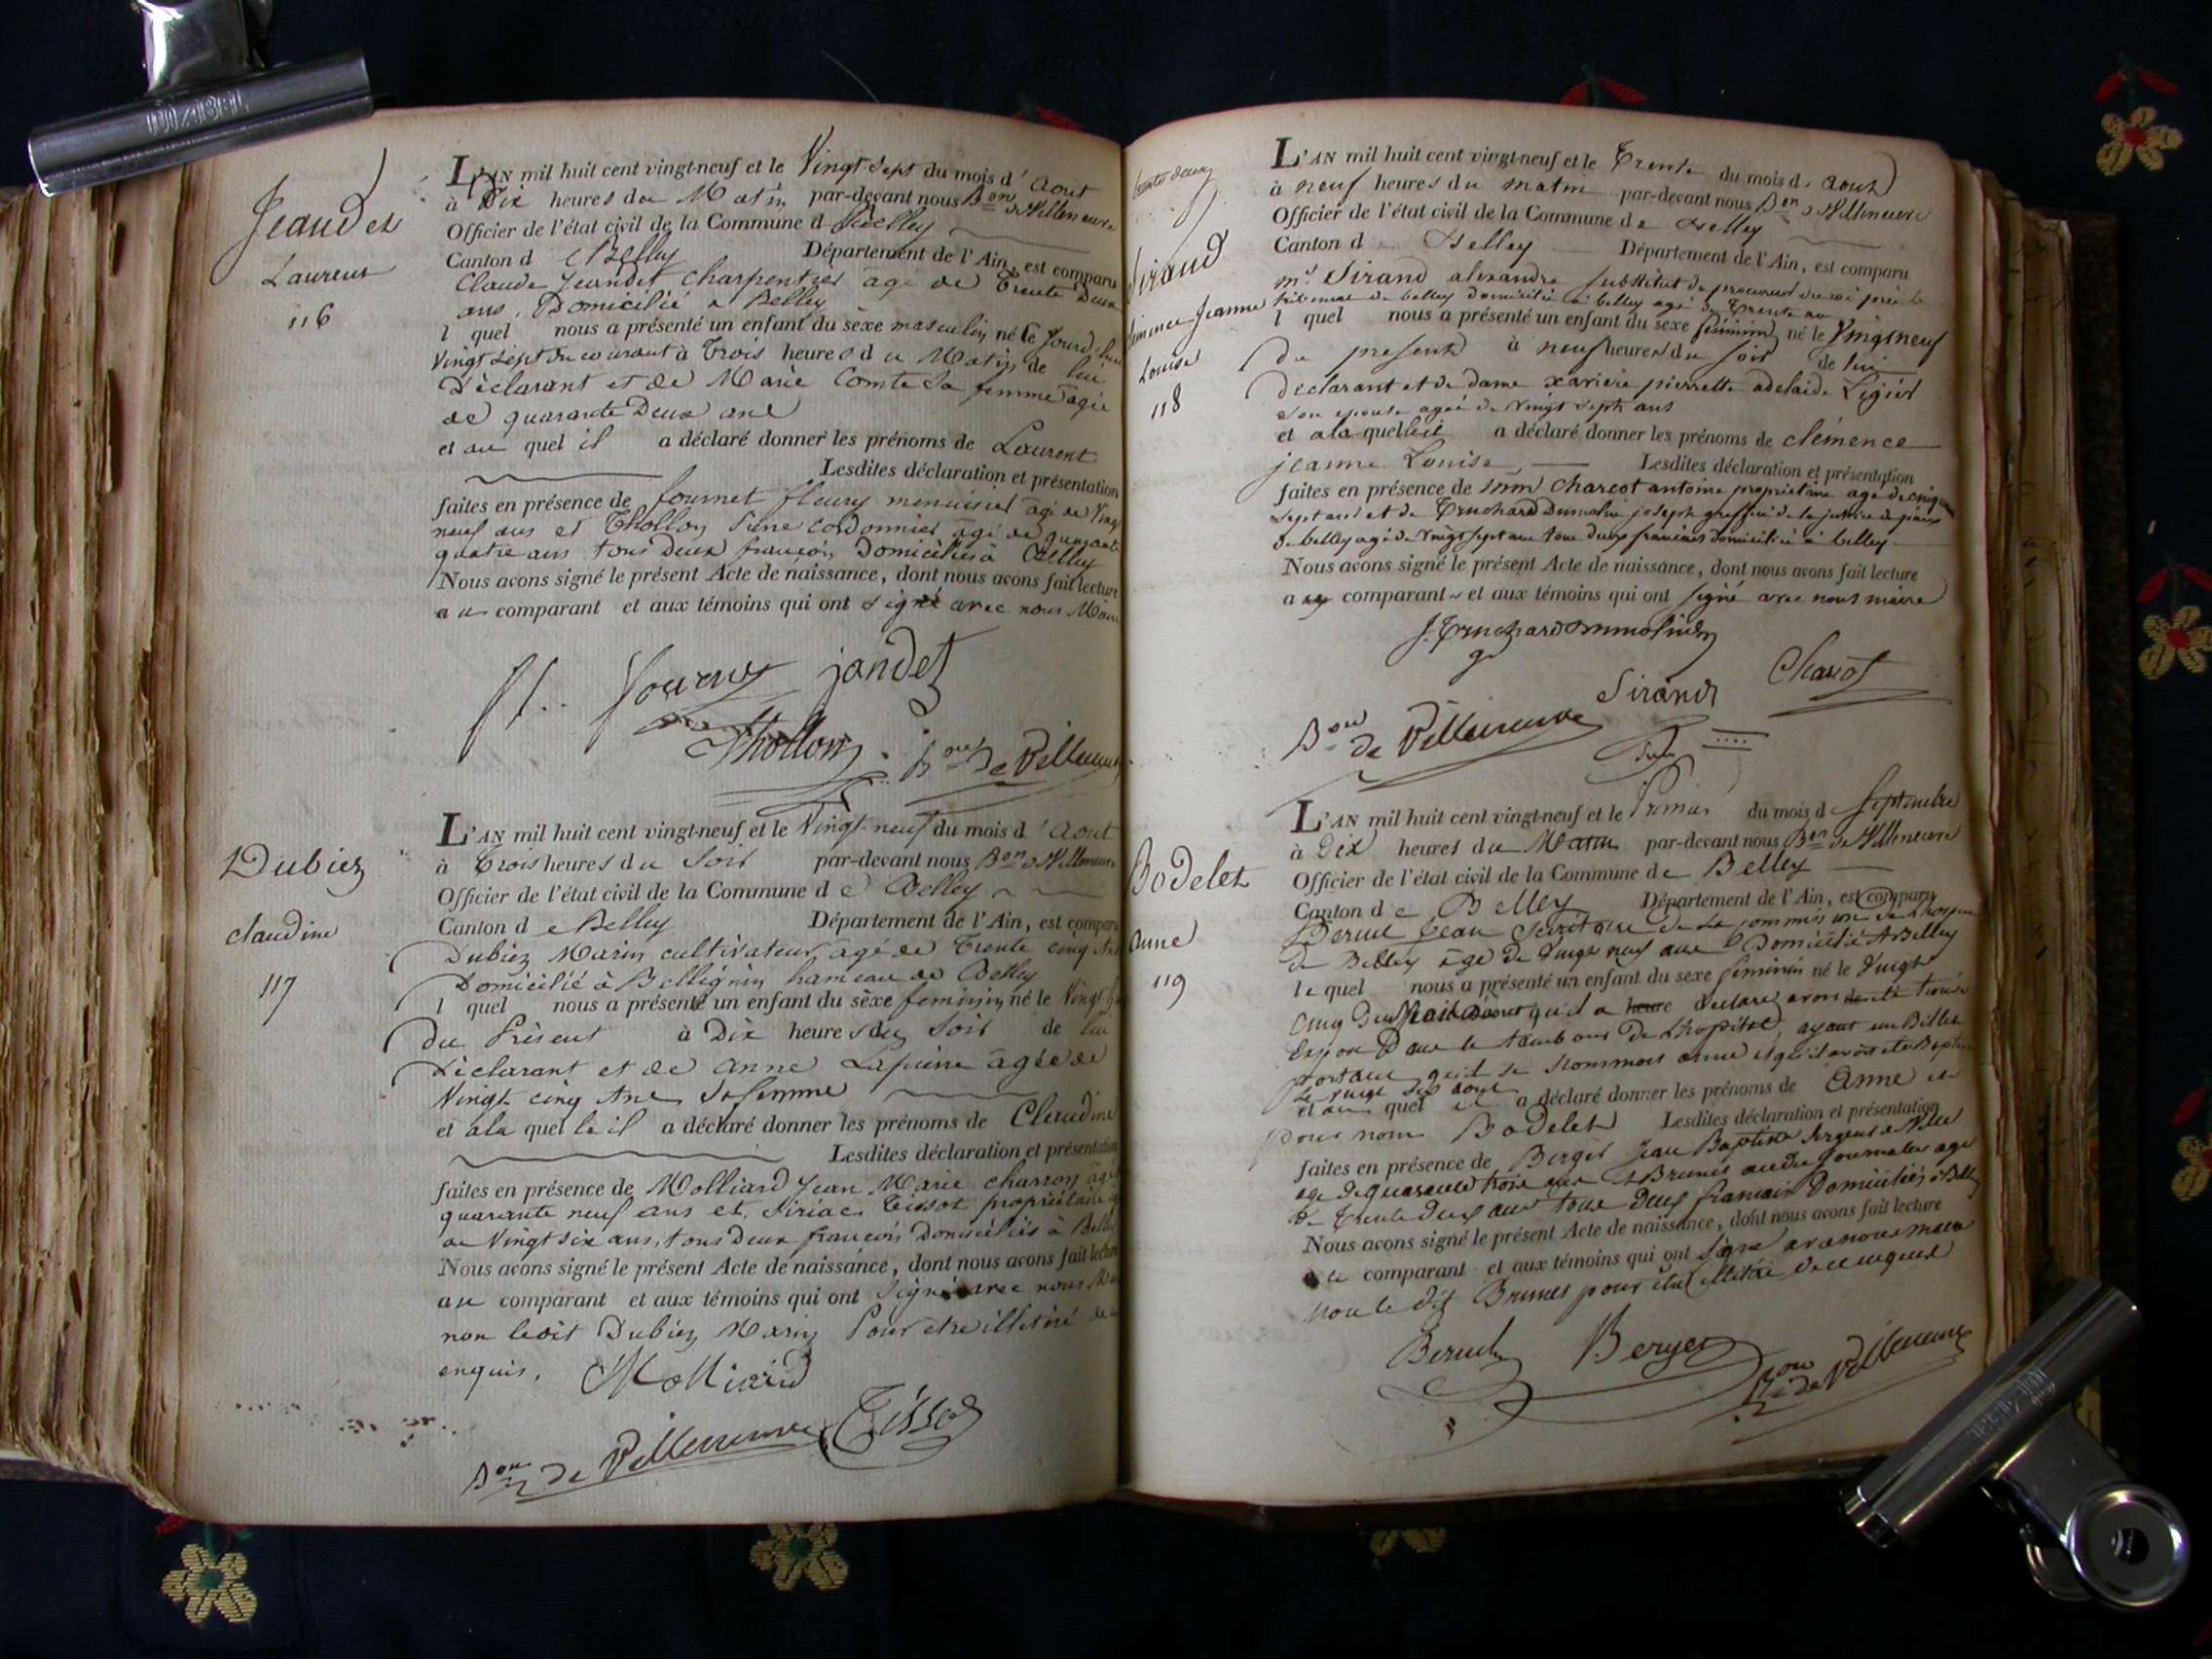 Jeaudet
Laurent
116
L'AN mil huit cent vingt-neuf et le Vingt-Sept du mois d'Aout
à Dix heures du Matin par-devant nous Bon de Villeneuve
Officier de l'état civil de la Commune de Belley
Canton de Belley Département de l'Ain, est comparu
Claude Jeandet charpentier agé de Trente Deux
ans, Domicilié a Belley
l quel nous a présenté un enfant du sèxe masculin né le Jourd'hui
Vingt sept du courant à Trois heures du Matin de lui
Dèclarant et de Marie Comte Sa femme agée
de quarante Deux ans
et au quel il a déclaré donner les prénoms de Laurent
Lesdites déclaration et présentation
faites en présence de fournet fleury menuisier agé de Vingt
neuf ans et Thollon Pierre cordonnier agé de quarante
quatre ans tous deux françois, Domiciliés à Belley
Nous avons signé le présent Acte de naissance, dont nous avons fait lecture
au comparant et aux témoins qui ont signé avec nous Maire
fournet jandet
Thollon Bon de Villeneuve
Dubiez
claudine
117
L'AN mil huit cent vingt-neuf et le Vingt neuf du mois d'Aout
à Trois heures du Soir par-devant nous Bon de Villeneuve
Officier de l'état civil de la Commune de Belley
Canton de Belley Département de l'Ain, est comparu
Dubiez Marin cultivateur agé de Trente cinq Ans
Domicilié à Bellignin hameau de Belley
l quel nous a présenté un enfant du sèxe feminin né le Vingt
du Présent à Dix heures du Soir de lui
Dèclarant et de Anne Lapierre agée de
Vingt cinq Ans Sa femme
et a la quelle il a déclaré donner les prénoms de Claudine
Lesdites déclaration et présentation
faites en présence de Molliard Jean Marie charron agé
quarante neuf ans et, Siriac Tissot propriétaire
de Vingt Six ans, tous Deux françois Domiciliés à Belley
Nous avons signé le présent Acte de naissance, dont nous avons fait lecture
au comparant et aux témoins qui ont Signé avec nous
non ledit Dubiez Marin Pour etre illetiré de
enquis.
Molliard
Bon de Villeneuve Tissot
trente deux
Sirand
Clémence Jeanne
Louise
118
L'AN mil huit cent vingt-neuf et le Trente du mois d'Aout
à neuf heures du matin par-devant nous Bon de Villeneuve
Officier de l'état civil de la Commune de Belley
Canton de Belley Département de l'Ain, est comparu
mr Sirand alexandre substitut de procureur du roi près le
tribunal de belley domicilié à belley agé de Trente ans
l quel nous a présenté un enfant du sexe féminin né le Vingt neuf
du présent à neuf heures du soir de lui
déclarant et de dame xaviere pierrette adelaide Ligier
son epouse agée de vingt sept ans
et a la quelle il a déclaré donner les prénoms de clémence
jeanne Louise Lesdites déclaration et présentation
faites en présence de mm Charcot antoine propriétaire agé de cinquante
sept ans et de Truchard Dumolin joseph greffier de la justice de paix
de belley agé de vingt sept ans tous deux français domiciliés à belley
Nous avons signé le présent Acte de naissance, dont nous avons fait lecture
a comparant et aux témoins qui ont signé avec nous maire
J. Truchard Dumolin
Sirand Charcot
Bon de Villeneuve
Bodelet
anne
119
L'AN mil huit cent vingt-neuf et le Premier du mois de Septembre
à Dix heures du Matin par-devant nous Bon de Villeneuve
Officier de l'état civil de la Commune de Belley
Canton de Belley Département de l'Ain, est comparu
Jean Secretaire de la commission de l'hospice
de Belley agé de Vingt neuf ans Domicilié A Belley
le quel nous a présenté un enfant du sexe féminin né le Vingt
cinq du qu'il a heure déclaré avoir été trouvé
Exposé Dans le tambour de l'hopital, ayant un Billet
portant qu'il se nommoit anne et qu'il avoit été Baptisé
Le vingt six aout
et au quel il a déclaré donner les prénoms de Anne et
pour nom Bodelet Lesdites déclaration et présentation
faites en présence de Berger Jean Baptiste Sergent de Ville
agé de quarante trois ans et Brunet andré journalier agé
de Trente deux ans tous deux français Domiciliés à Belley
Nous avons signé le présent Acte de naissance, dont nous avons fait lecture
a le comparant et aux témoins qui ont signé avec nous maire
non le dit Brunet pour être illetiré de ce enquis
Berger
Bon de Villeneuve